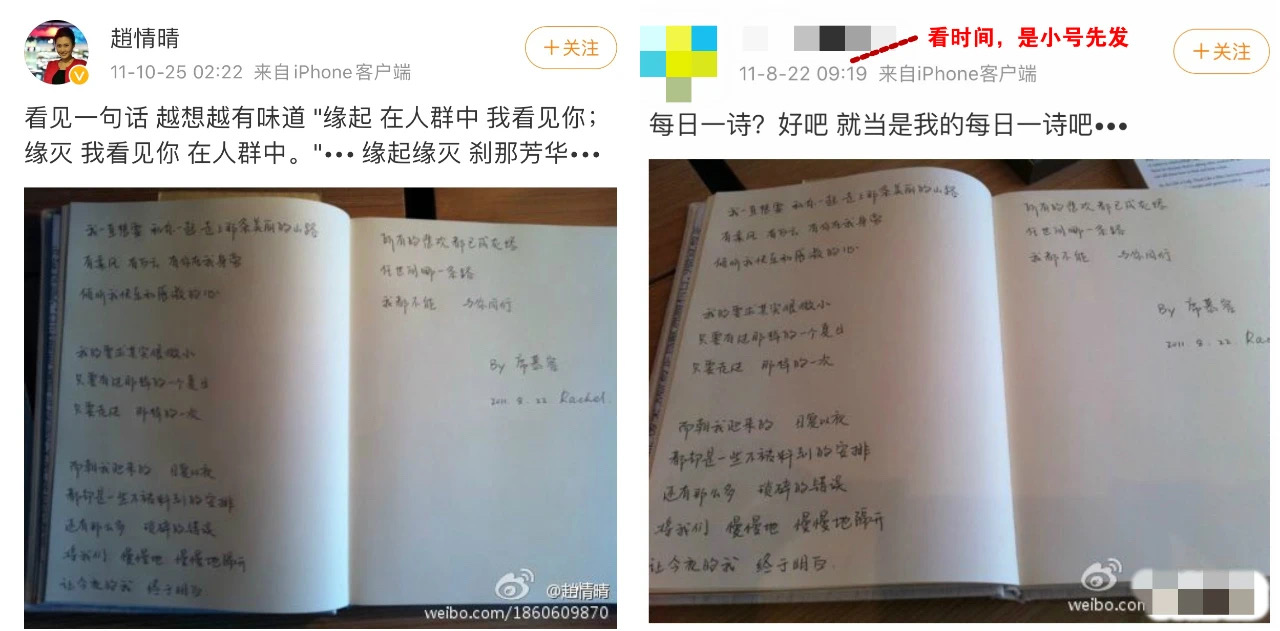 趙情晴
+关注
11-10-25 02:22 来自iPhone客户端
看见一句话 越想越有味道 "缘起 在人群中 我看见你；
缘灭 我看见你 在人群中。"••• 缘起缘灭 刹那芳华•••
我一直想要 和你一起 走上那条美丽的山路
有柔风 有白云 有你在我身旁
倾听我快乐和感激的心
我的要求其实很微小
只要有过那样的一个夏日
只要走过 那样的一次
而朝我迎来的 日复以夜
都却是一些不被料到的安排
还有那么多 琐碎的错误
将我们 慢慢地 慢慢地隔开
让今夜的我 终于明白
所有的悲欢都已成灰烬
任世间哪一条路
我都不能 与你同行
By 席慕容
2011. 8. 22 Rachel.
@趙情晴
weibo.com/1860609870
看时间，是小号先发
+关注
11-8-22 09:19 来自iPhone客户端
每日一诗？好吧 就当是我的每日一诗吧•••
我一直想要 和你一起 走上那条美丽的山路
有柔风 有白云 有你在我身旁
倾听我快乐和感激的心
我的要求其实很微小
只要有过那样的一个夏日
只要走过 那样的一次
而朝我迎来的 日复以夜
都却是一些不被料到的安排
还有那么多 琐碎的错误
将我们 慢慢地 慢慢地隔开
让今夜的我 终于明白
所有的悲欢都已成灰烬
任世间哪一条路
我都不能 与你同行
By 席慕容
2011. 8. 22. Rac
weibo.com